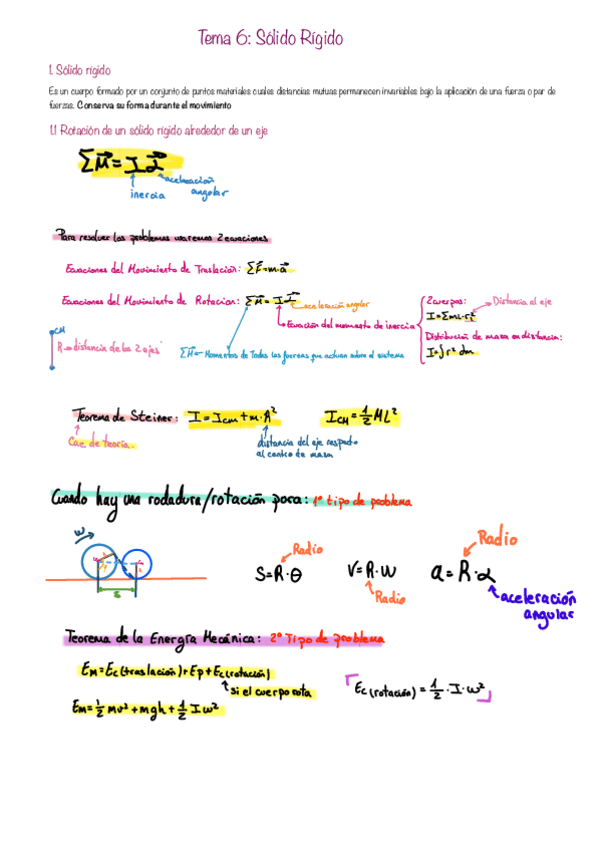 Tema 6: Sólido Rígido
1. Sólido rígido
Es un cuerpo formado por un conjunto de puntos materiales cuales distancias mutuas permanecen invariables bajo la aplicación de una fuerza o par de
fuerzas. Conserva su forma durante el movimiento
1.1 Rotación de un sólido rígido alrededor de un eje
ΣM = I α
inercia
aceleración
angular
Para resolver los problemas usaremos 2 ecuaciones
Ecuaciones del Movimiento de Traslación: ΣF = m·a
Ecuaciones del Movimiento de Rotacion: ΣM = I·α
aceleración angular
Ecuación del momento de inercia
2 cuerpos:
Distancia al eje
I = Σmi·ri²
Distribución de masa en distancia:
I = ∫r² dm
CM
R → distancia de los 2 ejes
ΣM → Momentos de todas las fuerzas que actúan sobre el sistema
Teorema de Steiner: I = Icm + m·A²
ICM = 1/2 ML²
Cae de teoría.
distancia del eje respecto
al centro de masa
Cuando hay una rodadura/rotación pura: 1º tipo de problema
ω
s
S = R·θ
Radio
V = R·ω
Radio
a = R·α
Radio
aceleración
angular
Teorema de la Energía Mecánica: 2º Tipo de problema
EM = Ec(traslación) + Ep + Ec(rotación)
si el cuerpo rota
EM = 1/2 mv² + mgh + 1/2 I ω²
Ec(rotación) = 1/2 · I · ω²